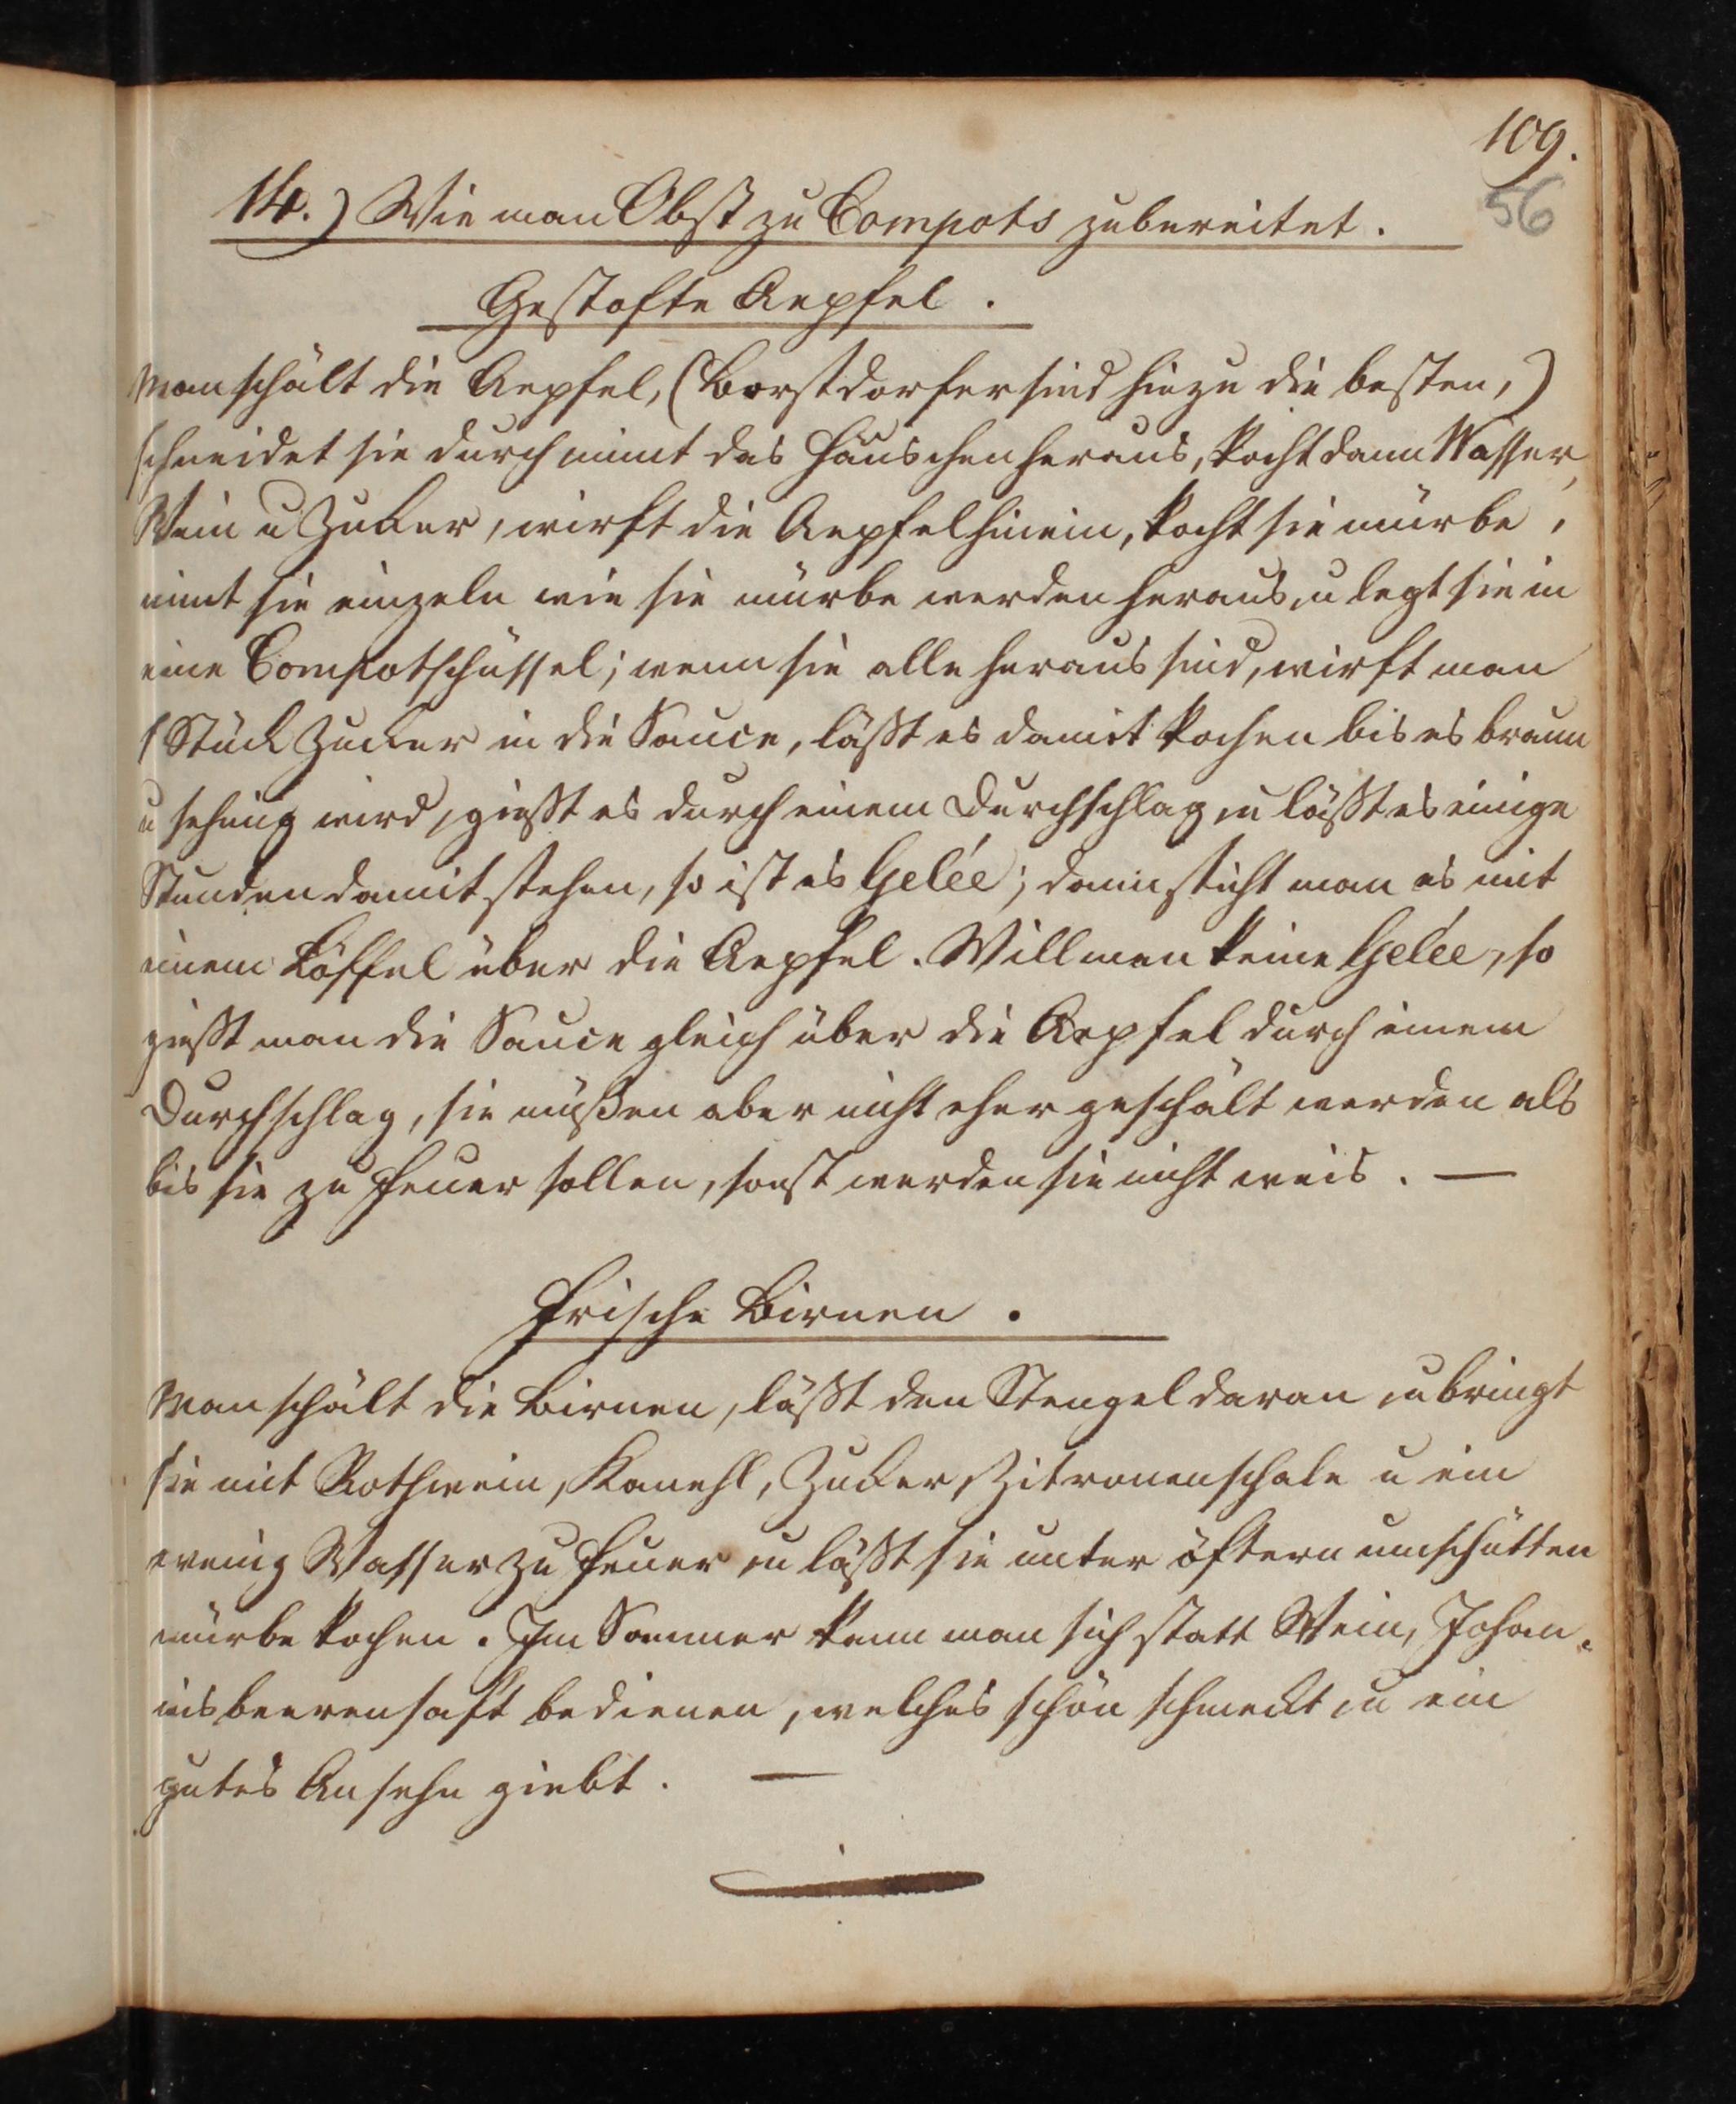 109.
56
14.) Wie man Obst zu Compots zubereitet.
Gestofte Aepfel.
Man schält die Aepfel, (Borstdorfer sind hiezu die besten,)
schneidet sie durch nimt das Häuschen heraus, kocht dann Wasser,
Wein u Zucker, wirft die Aepfel hinein, kocht sie mürbe,
nimt sie einzeln wie sie mürbe werden heraus, u legt sie in
eine Compotschüssel; wenn sie alle heraus sind, wirft man
1 Stück Zucker in die Sauce, läßt es damit kochen bis es braun
u sehnig wird, gießt es durch einem Durchschlag, u läßt es einige
Stunden damit stehen, so ist es Gelée; dann sticht man es mit
einem Löffel über die Aepfel. Will man keine Gelée, so
gießt man die Sauce gleich über die Aepfel durch einem
Durchschlag, sie müßen aber nicht eher geschält werden als
bis sie zu Feuer sollen, sonst werden sie nicht weis. —
Frische Birnen.
Man schält die Birnen, läßt den Stengel daran, u bringt
sie mit Rothwein, Kanehl, Zucker, Zitronenschale u ein
wenig Wasser zu Feuer, u läßt sie unter öftern umschütten
mürbe kochen. Im Sommer kann man sich statt Wein, Johan-
nisbeerensaft bedienen, welches schön schmeckt, u ein
gutes Ansehn giebt. —